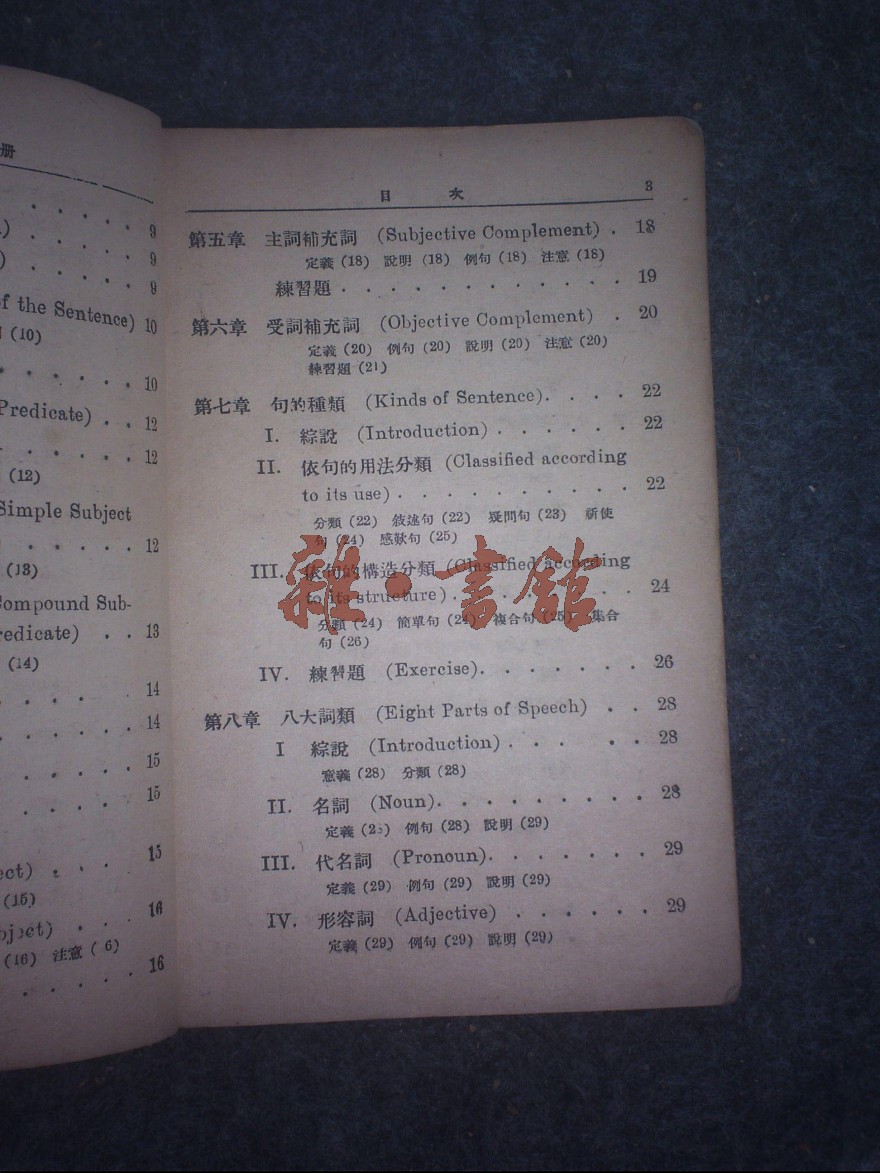 册
9
9
9
of the Sentence) 10
(10)
10
Predicate) . . 12
12
(12)
Simple Subject
12
(13)
Compound Sub-
redicate) . . 13
(14)
14
14
15
15
ect) . . . 15
(15)
bject) . . . 16
(16) 注意 ( 6)
16
目 次 3
第五章 主詞補充詞 (Subjective Complement) . 18
定義 (18) 說明 (18) 例句 (18) 注意 (18)
練習題 . . . . . . . . . . . . 19
第六章 受詞補充詞 (Objective Complement) . 20
定義 (20) 例句 (20) 說明 (20) 注意 (20)
練習題 (21)
第七章 句的種類 (Kinds of Sentence). . . . 22
I. 綜說 (Introduction) . . . . . . 22
II. 依句的用法分類 (Classified according
to its use) . . . . . . . . . . 22
分類 (22) 敍述句 (22) 疑問句 (23) 祈使
句 (24) 感歎句 (25)
III. 依句的構造分類 (Classified according
to its structure) . . . . . . . . 24
分類 (24) 簡單句 (24) 複合句 (25) 集合
句 (26)
IV. 練習題 (Exercise). . . . . . . 26
第八章 八大詞類 (Eight Parts of Speech) . . 28
I 綜說 (Introduction) . . . . . 28
意義 (28) 分類 (28)
II. 名詞 (Noun). . . . . . . . . 28
定義 (28) 例句 (28) 說明 (29)
III. 代名詞 (Pronoun). . . . . . . 29
定義 (29) 例句 (29) 說明 (29)
IV. 形容詞 (Adjective) . . . . . . 29
定義 (29) 例句 (29) 說明 (29)
雜·書館